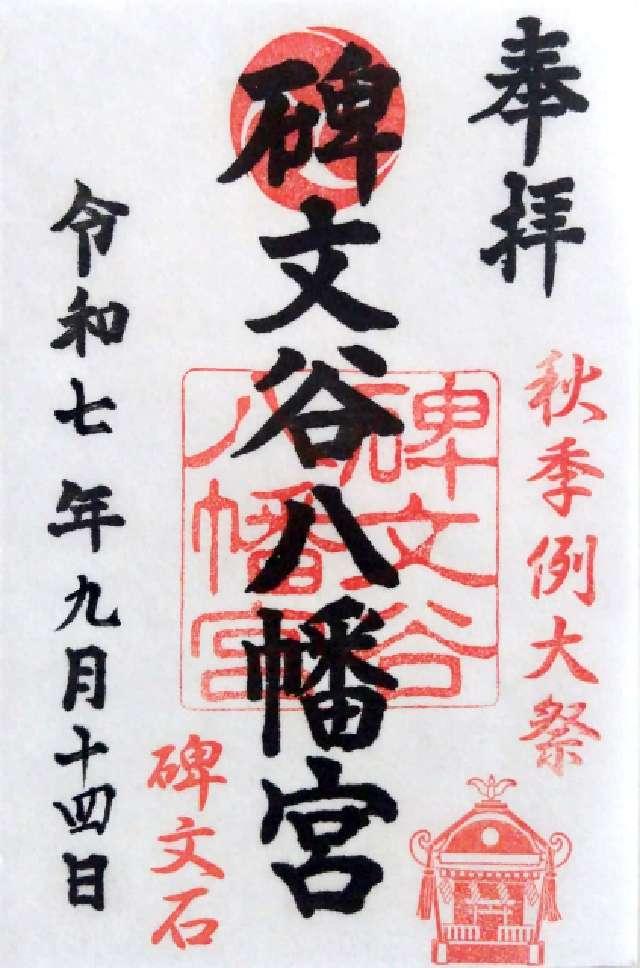 奉拝
秋季例大祭
碑文谷八幡宮
碑文谷
八幡宮
碑文石
令和七年九月十四日